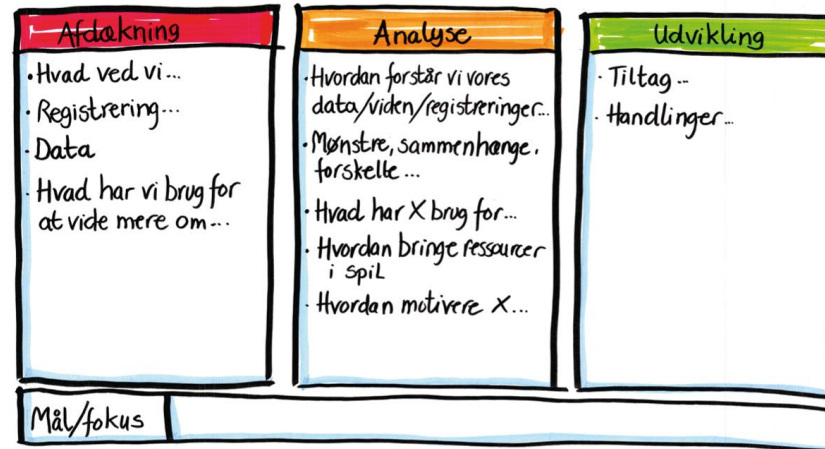 Afdækning
• Hvad ved vi...
• Registrering...
• Data
• Hvad har vi brug for
at vide mere om...
Analyse
• Hvordan forstår vi vores
data/viden/registreringer...
• Mønstre, sammenhænge,
forskelle...
• Hvad har X brug for...
• Hvordan bringe ressourcer
i spil
• Hvordan motivere X...
Udvikling
• Tiltag...
• Handlinger...
Mål/fokus